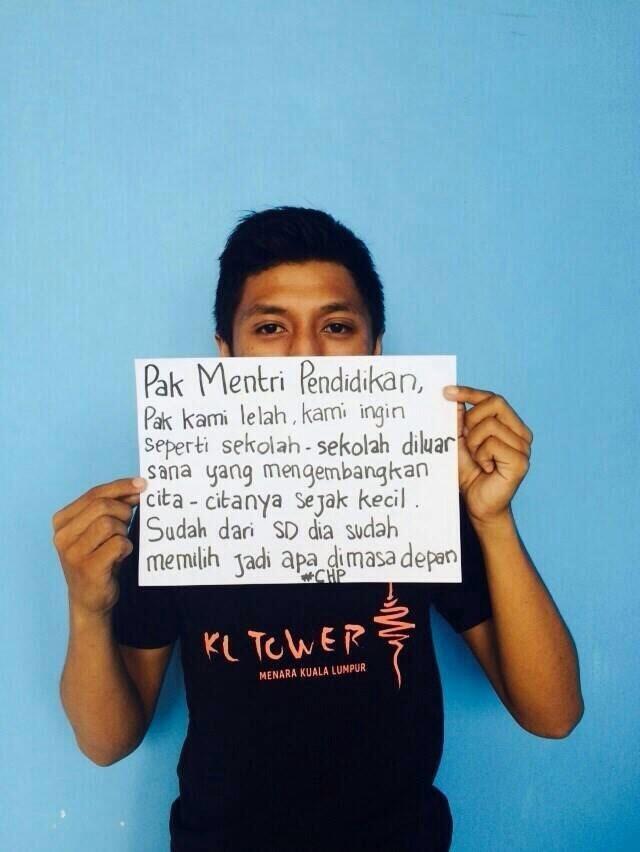 Pak Mentri Pendidikan,
Pak kami lelah, kami ingin
seperti sekolah - sekolah diluar
sana yang mengembangkan
cita - citanya sejak kecil.
Sudah dari SD dia sudah
memilih jadi apa dimasa depan
#CHP
KL TOWER
MENARA KUALA LUMPUR